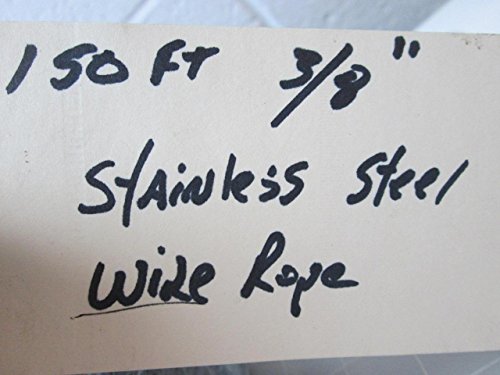 150 FT 3/8"
Stainless Steel
Wire Rope